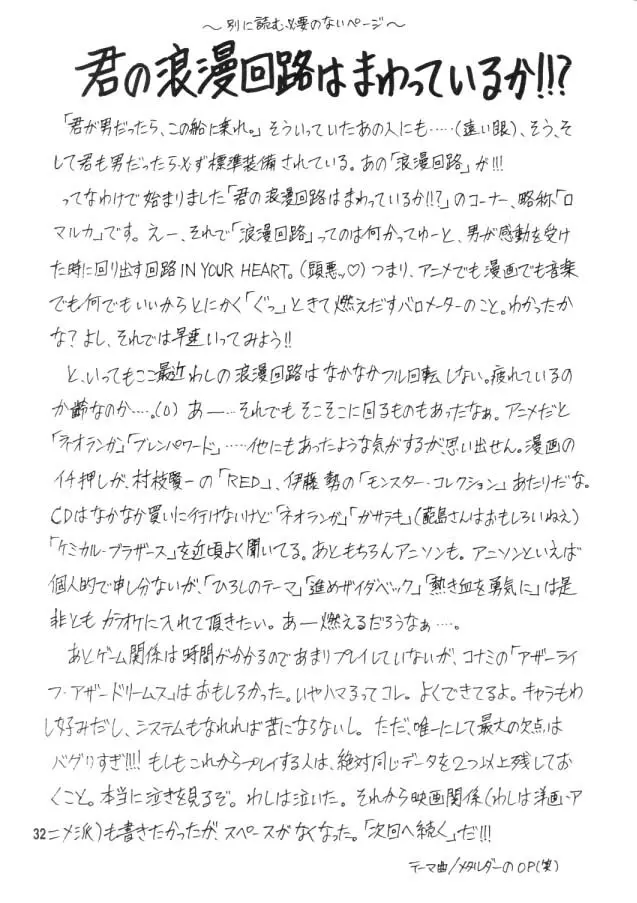 ～別に読む必要のないページ～
君の浪漫回路はまわっているか!!?
「君が男だったら、この船に乗れ。」そういっていたあの人にも……(遠い眼)、そう、そ
して君も男だったら必ず標準装備されている。あの「浪漫回路」が!!!
ってなわけで始まりました「君の浪漫回路はまわっているか!!?」のコーナー、略称「ロ
マルカ」です。えー、それで「浪漫回路」ってのは何かってゆーと、男が感動を受け
た時に回り出す回路IN YOUR HEART。(頭悪ッ♡)つまり、アニメでも漫画でも音楽
でも何でもいいからとにかく「ぐっ」ときて燃えだすバロメーターのこと。わかったか
な?よし、それでは早速いってみよう!!
と、いってもここ最近わしの浪漫回路はなかなかフル回転しない。疲れているの
か齢なのか……。(0) あー……それでもそこそこに回るものもあったなぁ。アニメだと
「ネオランガ」「ブレンパワード」……他にもあったような気がするが、思い出せん。漫画の
イチ押しが、村枝賢一の「RED」、伊藤勢の「モンスター・コレクション」あたりだな。
CDはなかなか買いに行けないけど「ネオランガ」「ガサラキ」(蓜島さんはおもしろいねえ)
「ケミカル・ブラザース」を近頃よく聞いてる。あともちろんアニソンも。アニソンといえば
個人的で申し分ないが、「ひろしのテーマ」「進めザイダベック」「熱き血を勇気に」は是
非ともカラオケに入れて頂きたい。あー燃えるだろうなぁ……。
あとゲーム関係は時間がかかるのであまりプレイしていないが、コナミの「アザーライ
フ・アザードリームス」はおもしろかった。いやハマるってコレ。よくできてるよ。キャラもわ
し好みだし、システムもなれれば苦にならないし。ただ、唯一にして最大の欠点は
バグりすぎ!!!! もしもこれからプレイする人は、絶対同じデータを2つ以上残してお
くこと。本当に泣きを見るぞ。わしは泣いた。それから映画関係(わしは洋画・ア
ニメ派)も書きたかったが、スペースがなくなった。「次回へ続く」だ!!!
32
テーマ曲/メタルダーのOP(笑)